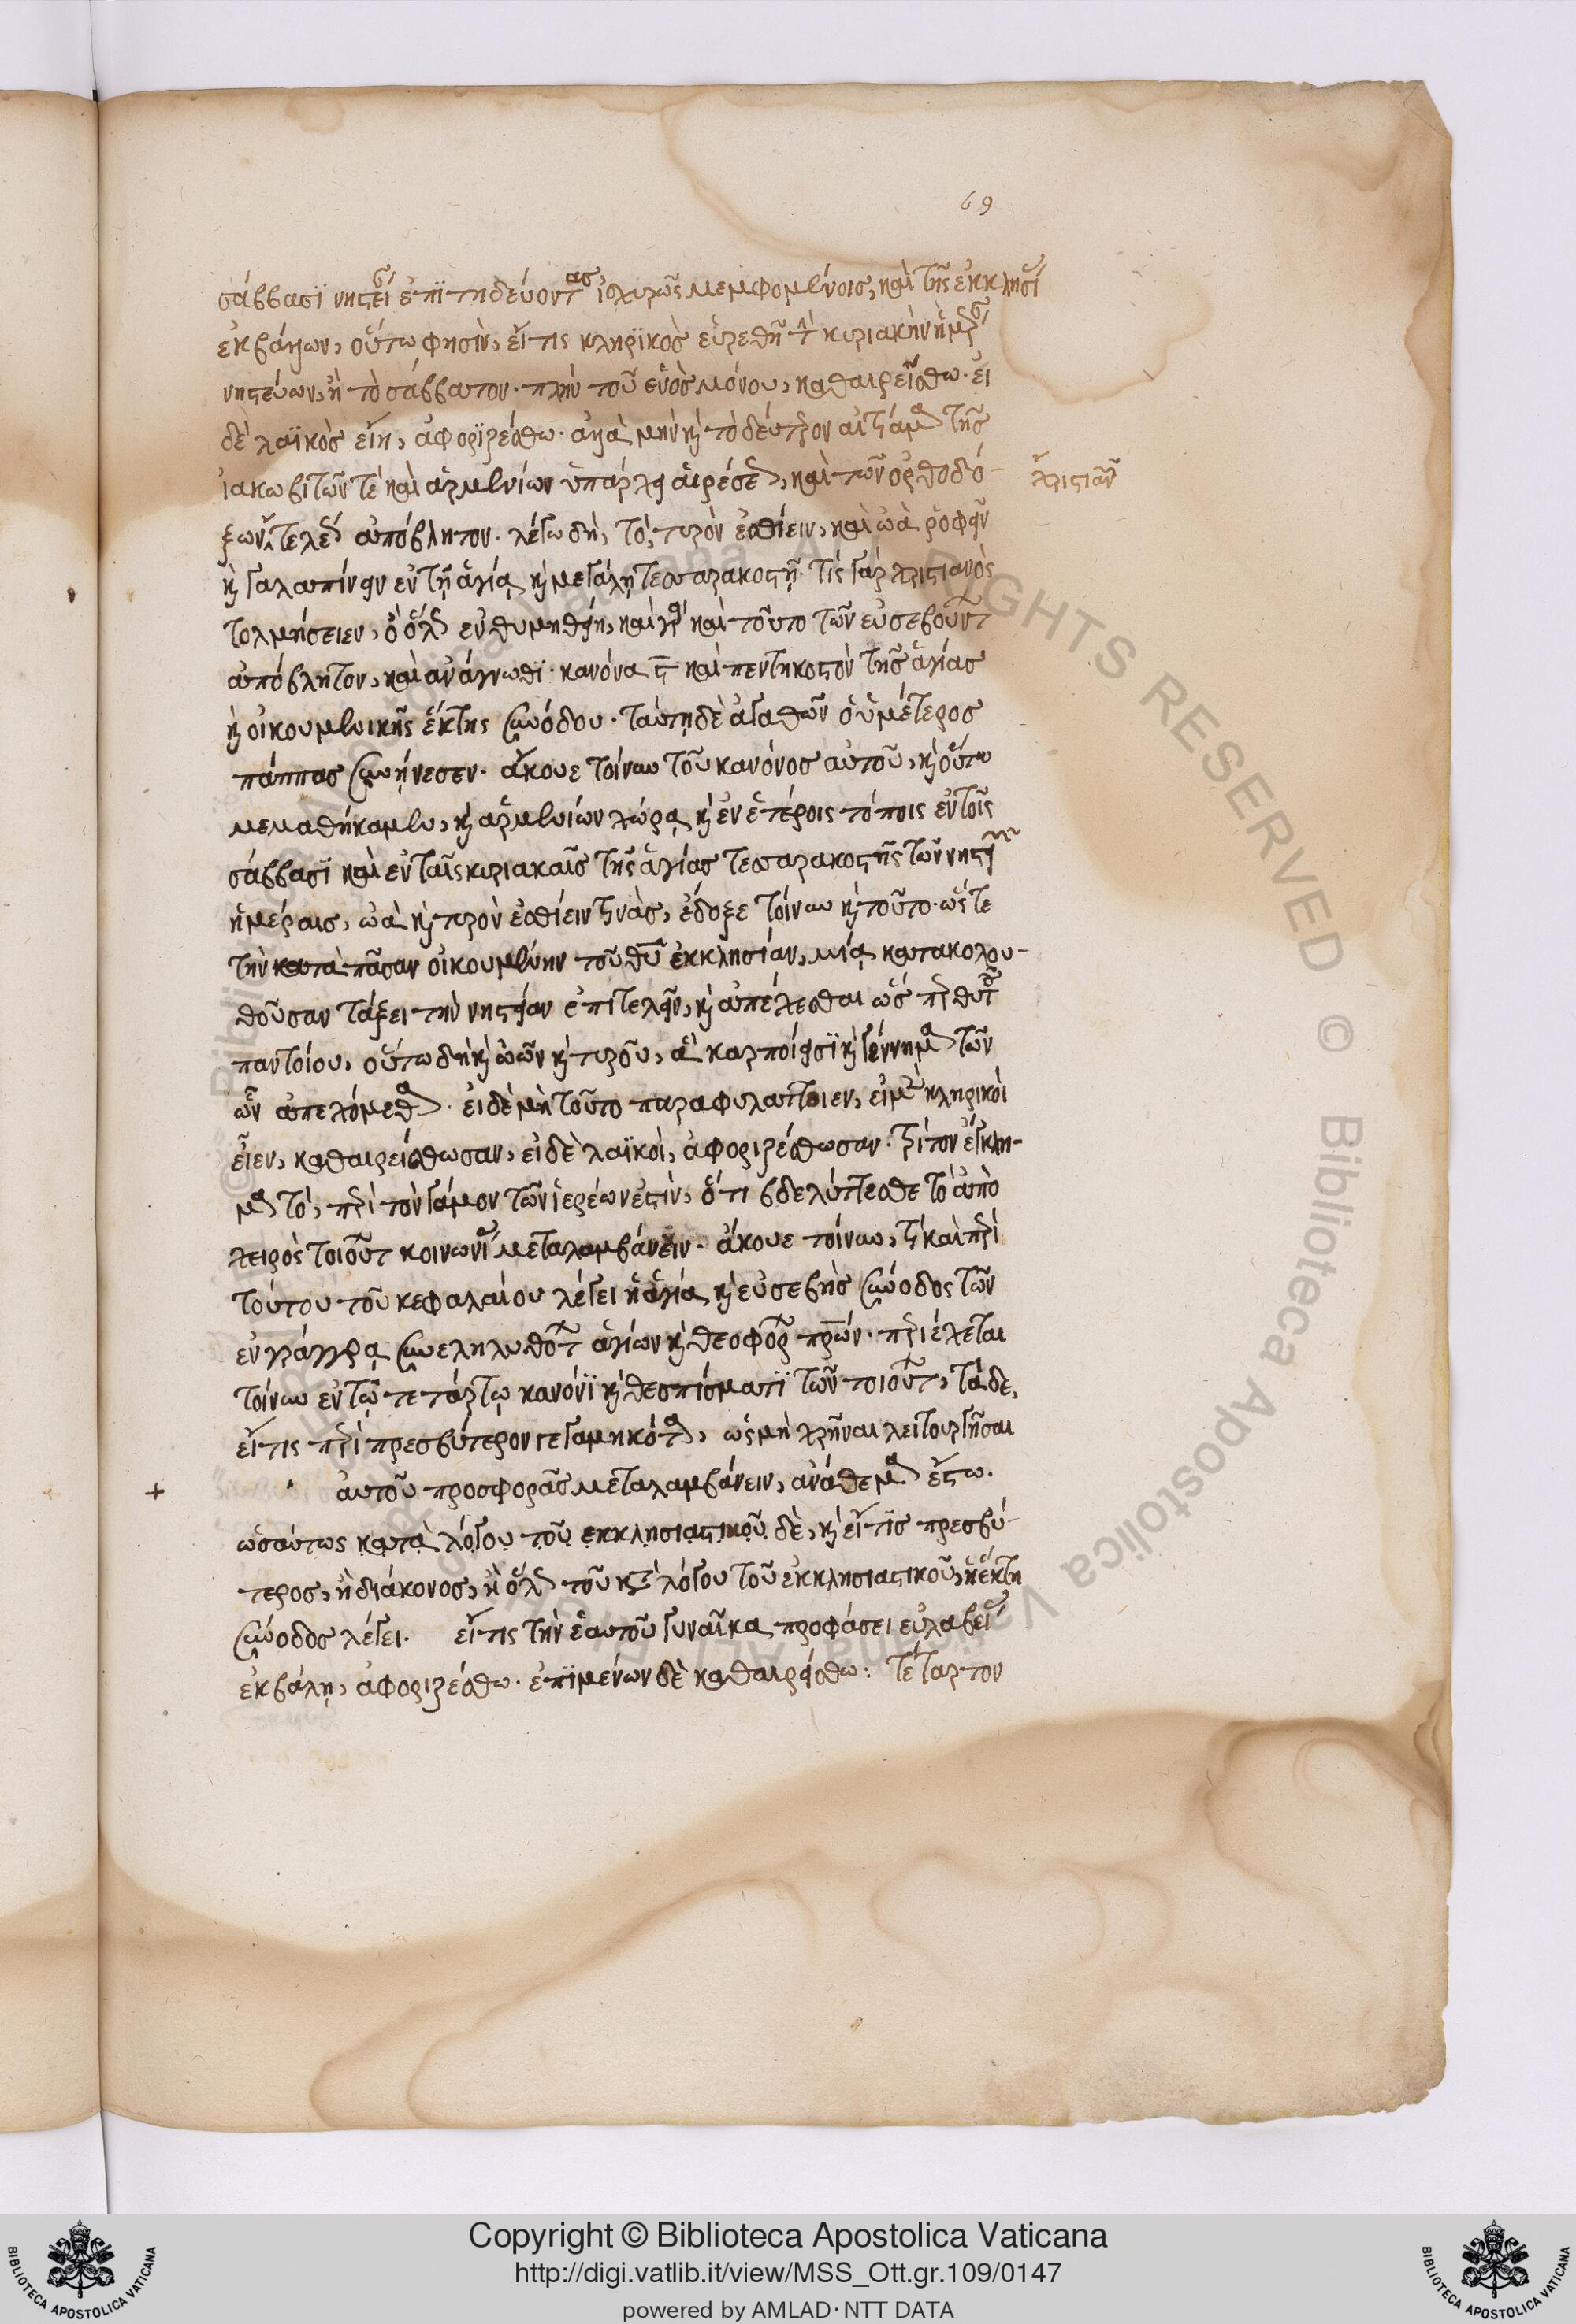 69
σάββασϊ νηστεί ἐπϊτηδεύοντας ἰσχυρῶς μεμφομένοις, καὶ τῆς ἐκκλησί
ἐκβάλλων, οὕτω φησὶν, εἴ τις κληρϊκὸς εὑρεθῆ τ κυριακὴν ἡμέρ
νηστεύων, ἢ τὸ σάββατον· πλὴν τοῦ ἑνὸς μόνου, καθαιρείσθω· εἰ
δὲ λαϊκὸς εἴη, ἀφορϊζέσθω· ἀλλὰ μὴν κ τὸ δεύτερον αἰτίαμα τῆς
ἰακωβιτῶν τὲ καὶ ἀρμενίων ὑπάρχει αἱρέσε, καὶ τῶν ὀρθοδό-
χριστιαν
ξων τελέ ἀπόβλητον· λέγω δὴ, τὸ, τυρὸν ἐσθίειν, καὶ ὠὰ ῥοφεῖν
κ γαλαπίνειν ἐν τῇ ἁγίᾳ κ μεγάλῃ τεσσαρακοστῇ· τίς γὰρ χριστιανὸς
τολμήσειεν, ὃ ὅλ ἐνθυμηθείη, καὶ γ καὶ τοῦτο τῶν εὐσεβοῦντ
ἀπόβλητον, καὶ ἀνάγνωθϊ· κανόνα ς καὶ πεντηκοστὸν τῆς ἁγίας
κ οἰκουμενικῆς ἕκτης συνόδου· ταύτῃ δὲ ἀγαθῶν ὁ ὑμέτερος
πάππας συνήνεσεν· ἄκουε τοίνυν τοῦ κανόνος αὐτοῦ, κ οὕτω
μεμαθήκαμεν, κ ἀρμενίων χώρᾳ κ ἐν ἑτέροις τόποις ἐν τοῖς
σάββασϊ καὶ ἐν ταῖς κυριακαῖς τῆς ἁγίας τεσσαρακοστῆς τῶν νηστει
ἡμέραις, ὠὰ κ τυρὸν ἐσθίειν τινὰς, ἔδοξε τοίνυν κ τοῦτο· ὥστε
τὴν κατὰ πᾶσαν οἰκουμένην τοῦ θυ ἐκκλησίαν, μιᾷ κατακολου-
θοῦσαν τάξει τὴν νηστείαν ἐπιτελεῖν, κ ἀπέχεσθαι ὡς περ θυτ
παντοίου, οὕτω δὴ κ ὠῶν κ τυροῦ, ἃ καρποί εἰσϊ κ γέννημα τῶν
ὧν ἀπεχόμεθα· εἰ δὲ μὴ τοῦτο παραφυλάττοιεν, εἰ μὲν κληρικοὶ
εἶεν, καθαιρείσθωσαν, εἰ δὲ λαϊκοὶ, ἀφοριζέσθωσαν· τρίτον ἔγκλη-
μα τὸ, περὶ τὸν γάμον τῶν ἱερέων ἐστὶν, ὅτι βδελύττεσθε τὸ ἀπὸ
χειρὸς τοιούτ κοινωνί μεταλαμβάνειν· ἄκουε τοίνυν, τί καὶ περὶ
τούτου τοῦ κεφαλαίου λέγει ἡ ἁγία κ εὐσεβὴς σύνοδος τῶν
ἐν γάγγρᾳ συνεληλυθότ ἁγίων κ θεοφόρ πρων· περιέχεται
τοίνυν ἐν τῷ τετάρτῳ κανόνϊ κ θεσπίσματϊ τῶν τοιούτ, τάδε,
εἴ τις περὶ πρεσβύτερον γεγαμηκότα, ὡς μὴ χρῆναι λειτουργῆσαι
αὐτοῦ προσφορᾶς μεταλαμβάνειν, ἀνάθεμα ἔστω·
ὡσαύτως κατὰ λόγου τοῦ ἐκκλησιαστικοῦ δὲ, κ εἴ τϊς πρεσβύ-
τερος, ἢ διάκονος, ἢ ὅλ τοῦ κτ λόγου τοῦ ἐκκλησιαστικοῦ, ἡ ἕκτη
σύνοδος λέγει· εἴ τις τὴν ἑαυτοῦ γυναῖκα προφάσει εὐλαβεί
ἐκβάλῃ, ἀφοριζέσθω· ἐπϊμένων δὲ καθαιρείσθω: τέταρτον
Copyright © Biblioteca Apostolica Vaticana
http://digi.vatlib.it/view/MSS_Ott.gr.109/0147
powered by AMLAD·NTT DATA